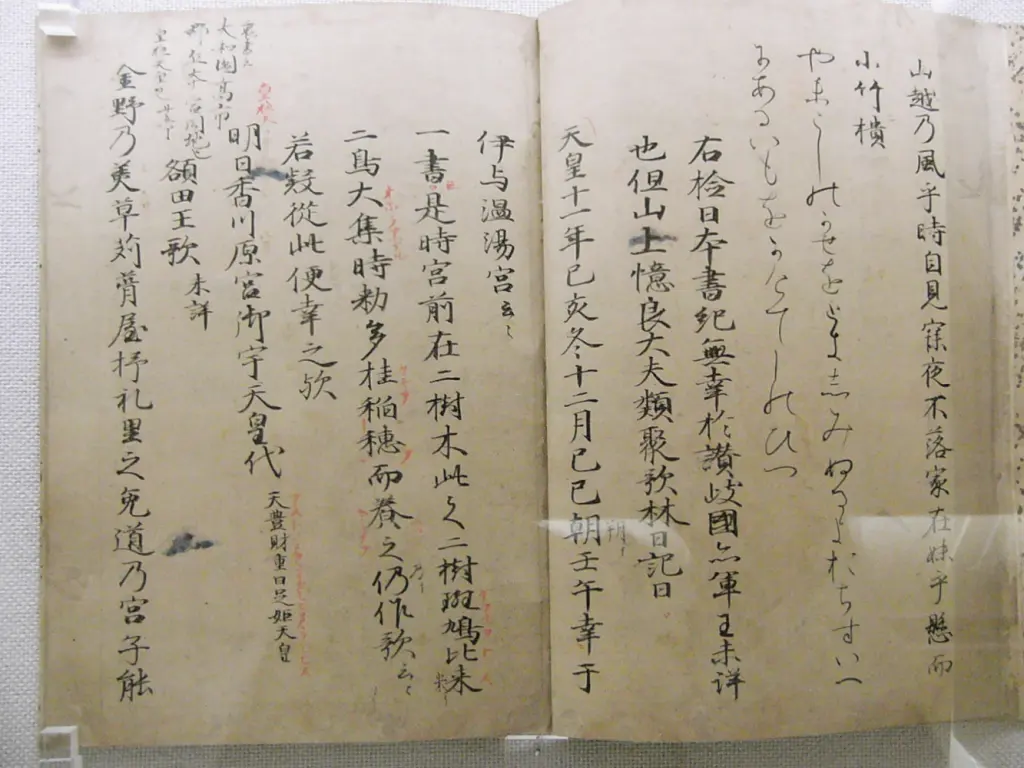 山越乃風乎時自見寐夜不落家在妹乎懸而
小竹櫃
やまこしのかせをときしみぬるよおちすいへ
にあるいもをかけてしのひつ
右检日本書紀無幸於讃岐國亦軍王未詳
也但山上憶良大夫類聚歌林曰記曰
天皇十一年己亥冬十二月己巳朝壬午幸于
朔
伊与温湯宮云〻
一書是時宮前在二樹木此之二樹斑鳩比米
二鳥大集時勅多桂稲穂而養之仍作歌云〻
若疑從此便幸之欤
明日香川原宮御宇天皇代 天豊財重日足姫天皇
額田王歌 未詳
金野乃美草苅葺屋杼礼里之兔道乃宮子能